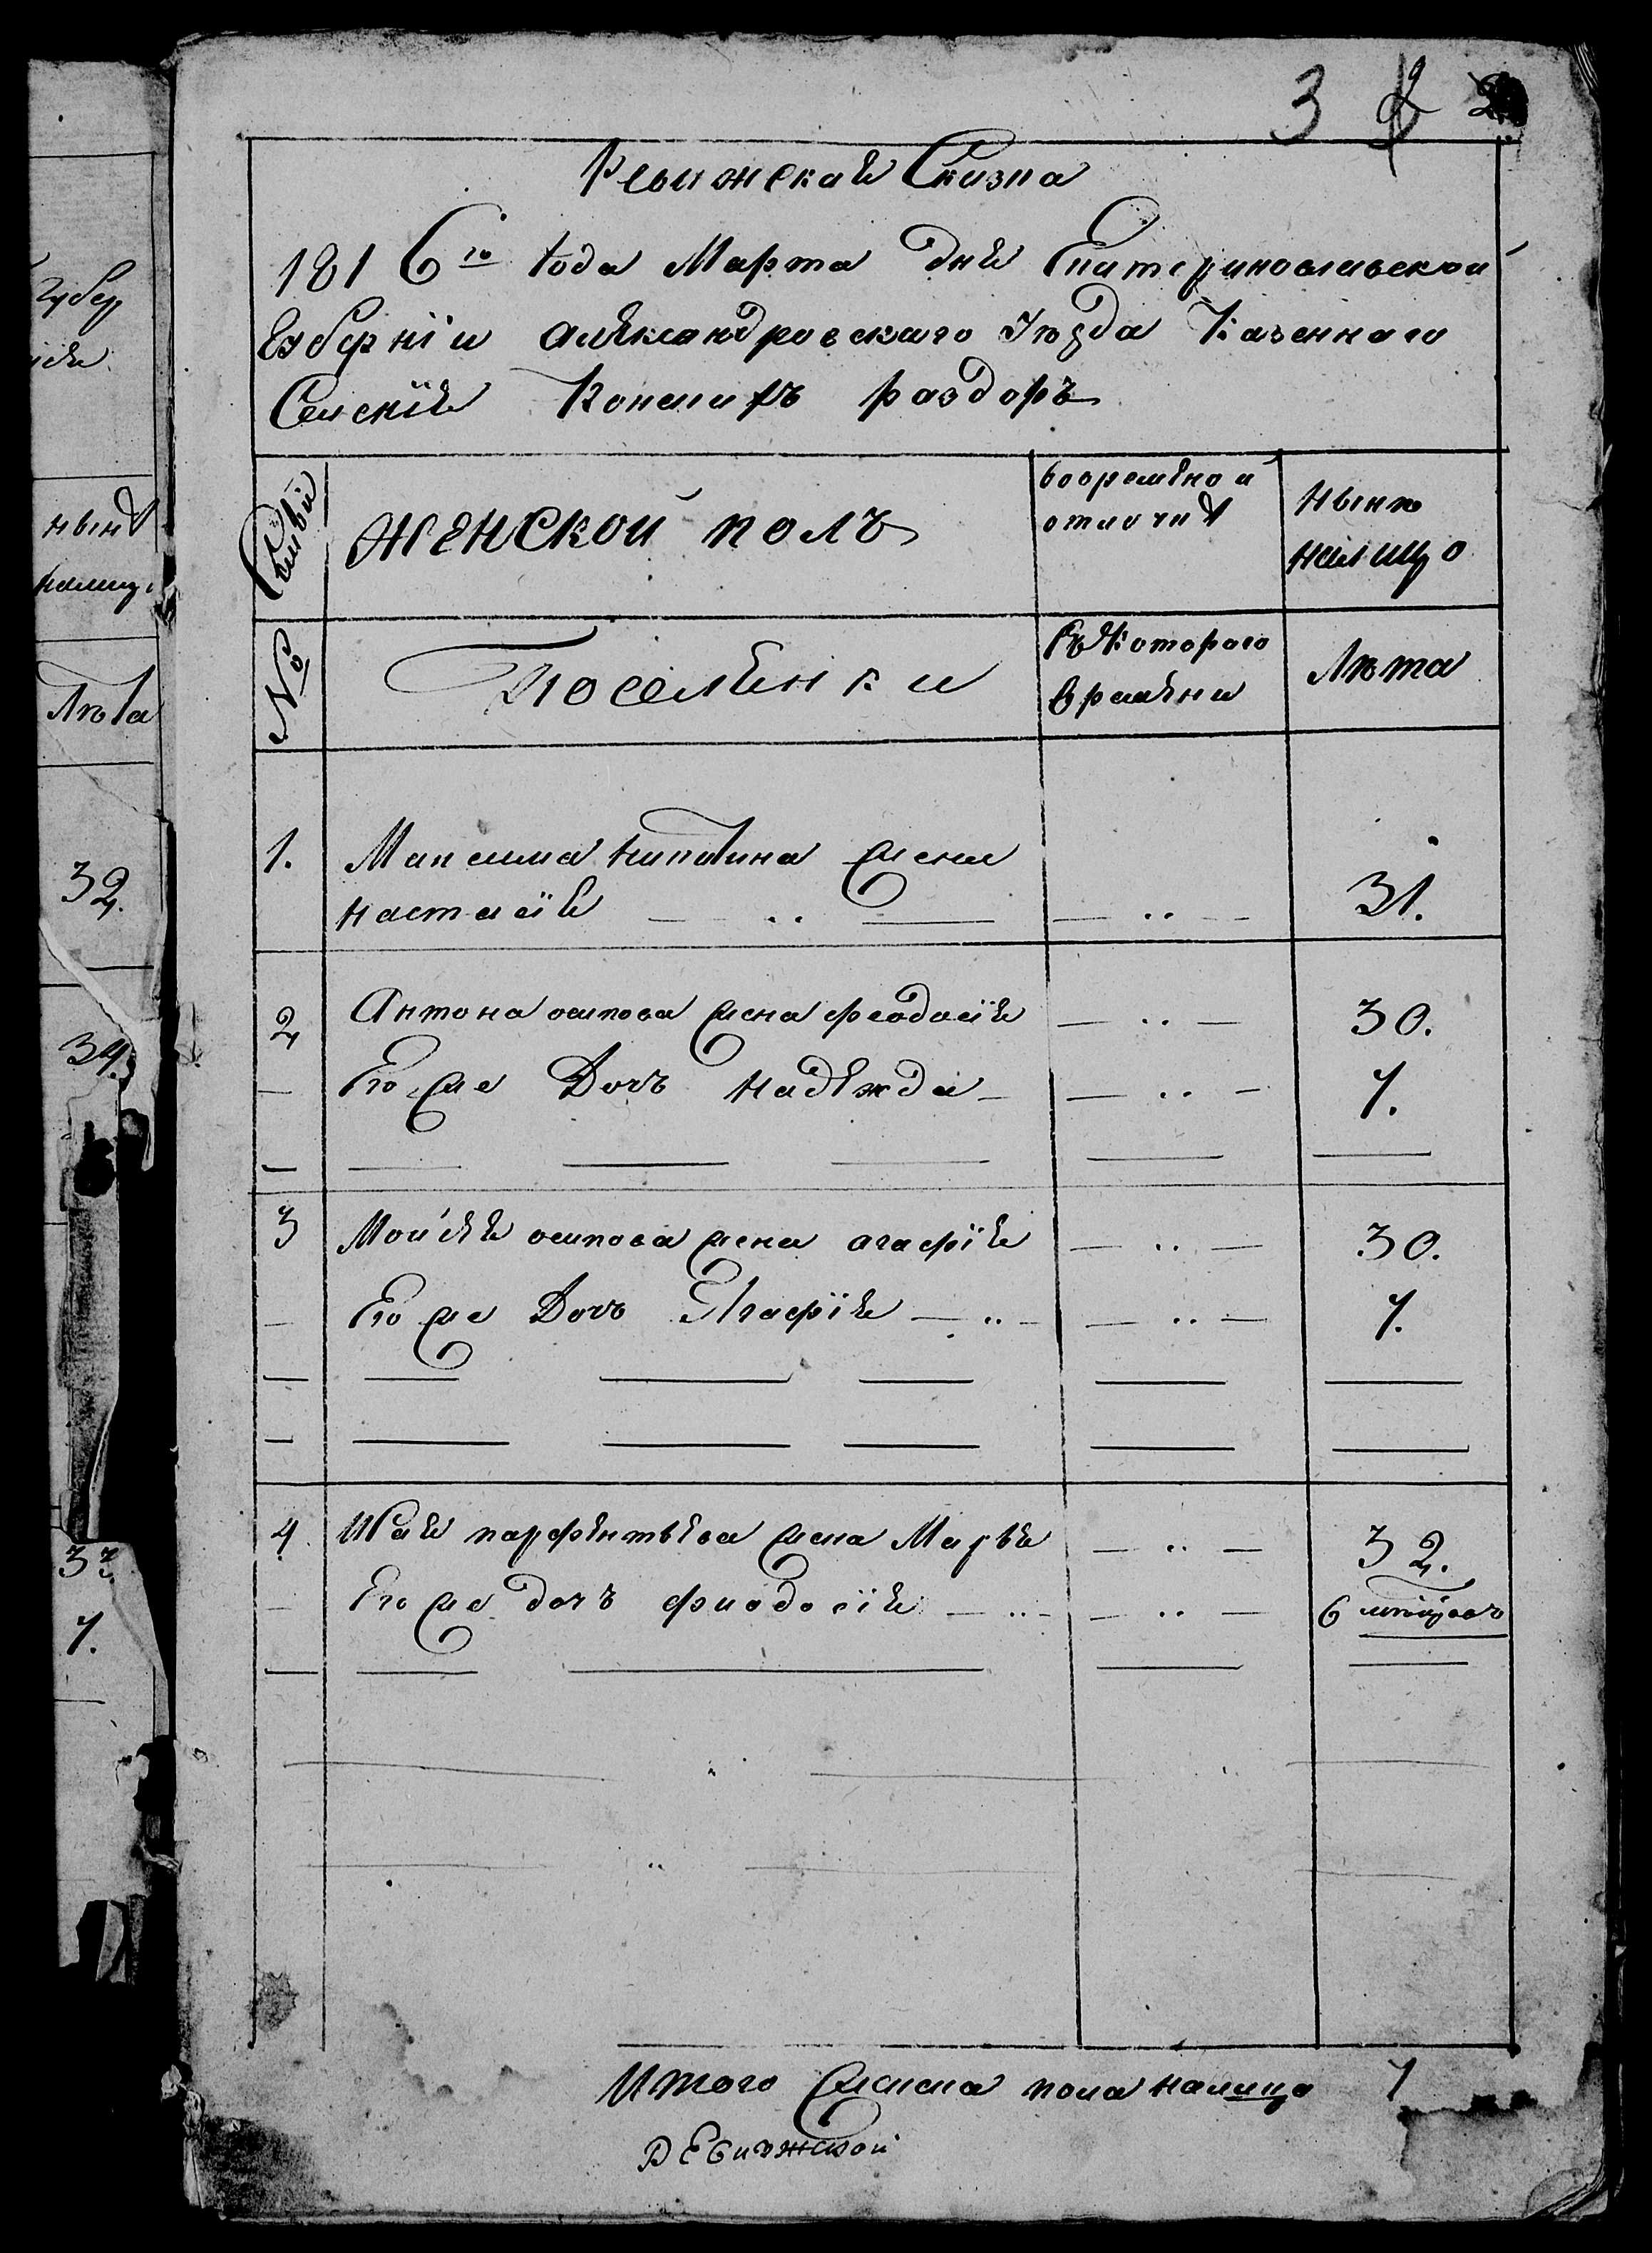 3 2
Ревижская Сказка
1816го Года Марта дня Екатеринославской
Губерніи Александровскаго Уѣзда Казеннаго
Селенія раздоръ
Семьи
женской полъ
вовременной
отлучкѣ
Нынѣ
налицо
№
Поселянки
Съ которого
времени
Лѣта
1. Максима Никитина жена
Настасія — .. — — .. — 31.
2 Антона осипова жена феодосія — .. — 30.
— Его же Дочь Надежда — — .. — 7.
3 Мойсея осипова жена агафія — .. — 30.
— Его же Дочь Агафія — .. — — .. — 7.
4 Исая парфентьева жена Марья — .. — 32.
— Его же дочь фиодосія — .. — — .. — 6 мѣсяцовъ
Итого женска пола налицо 7
Ревижской
губер
нынѣ
налицо
Лѣта
32.
34.
32
7.